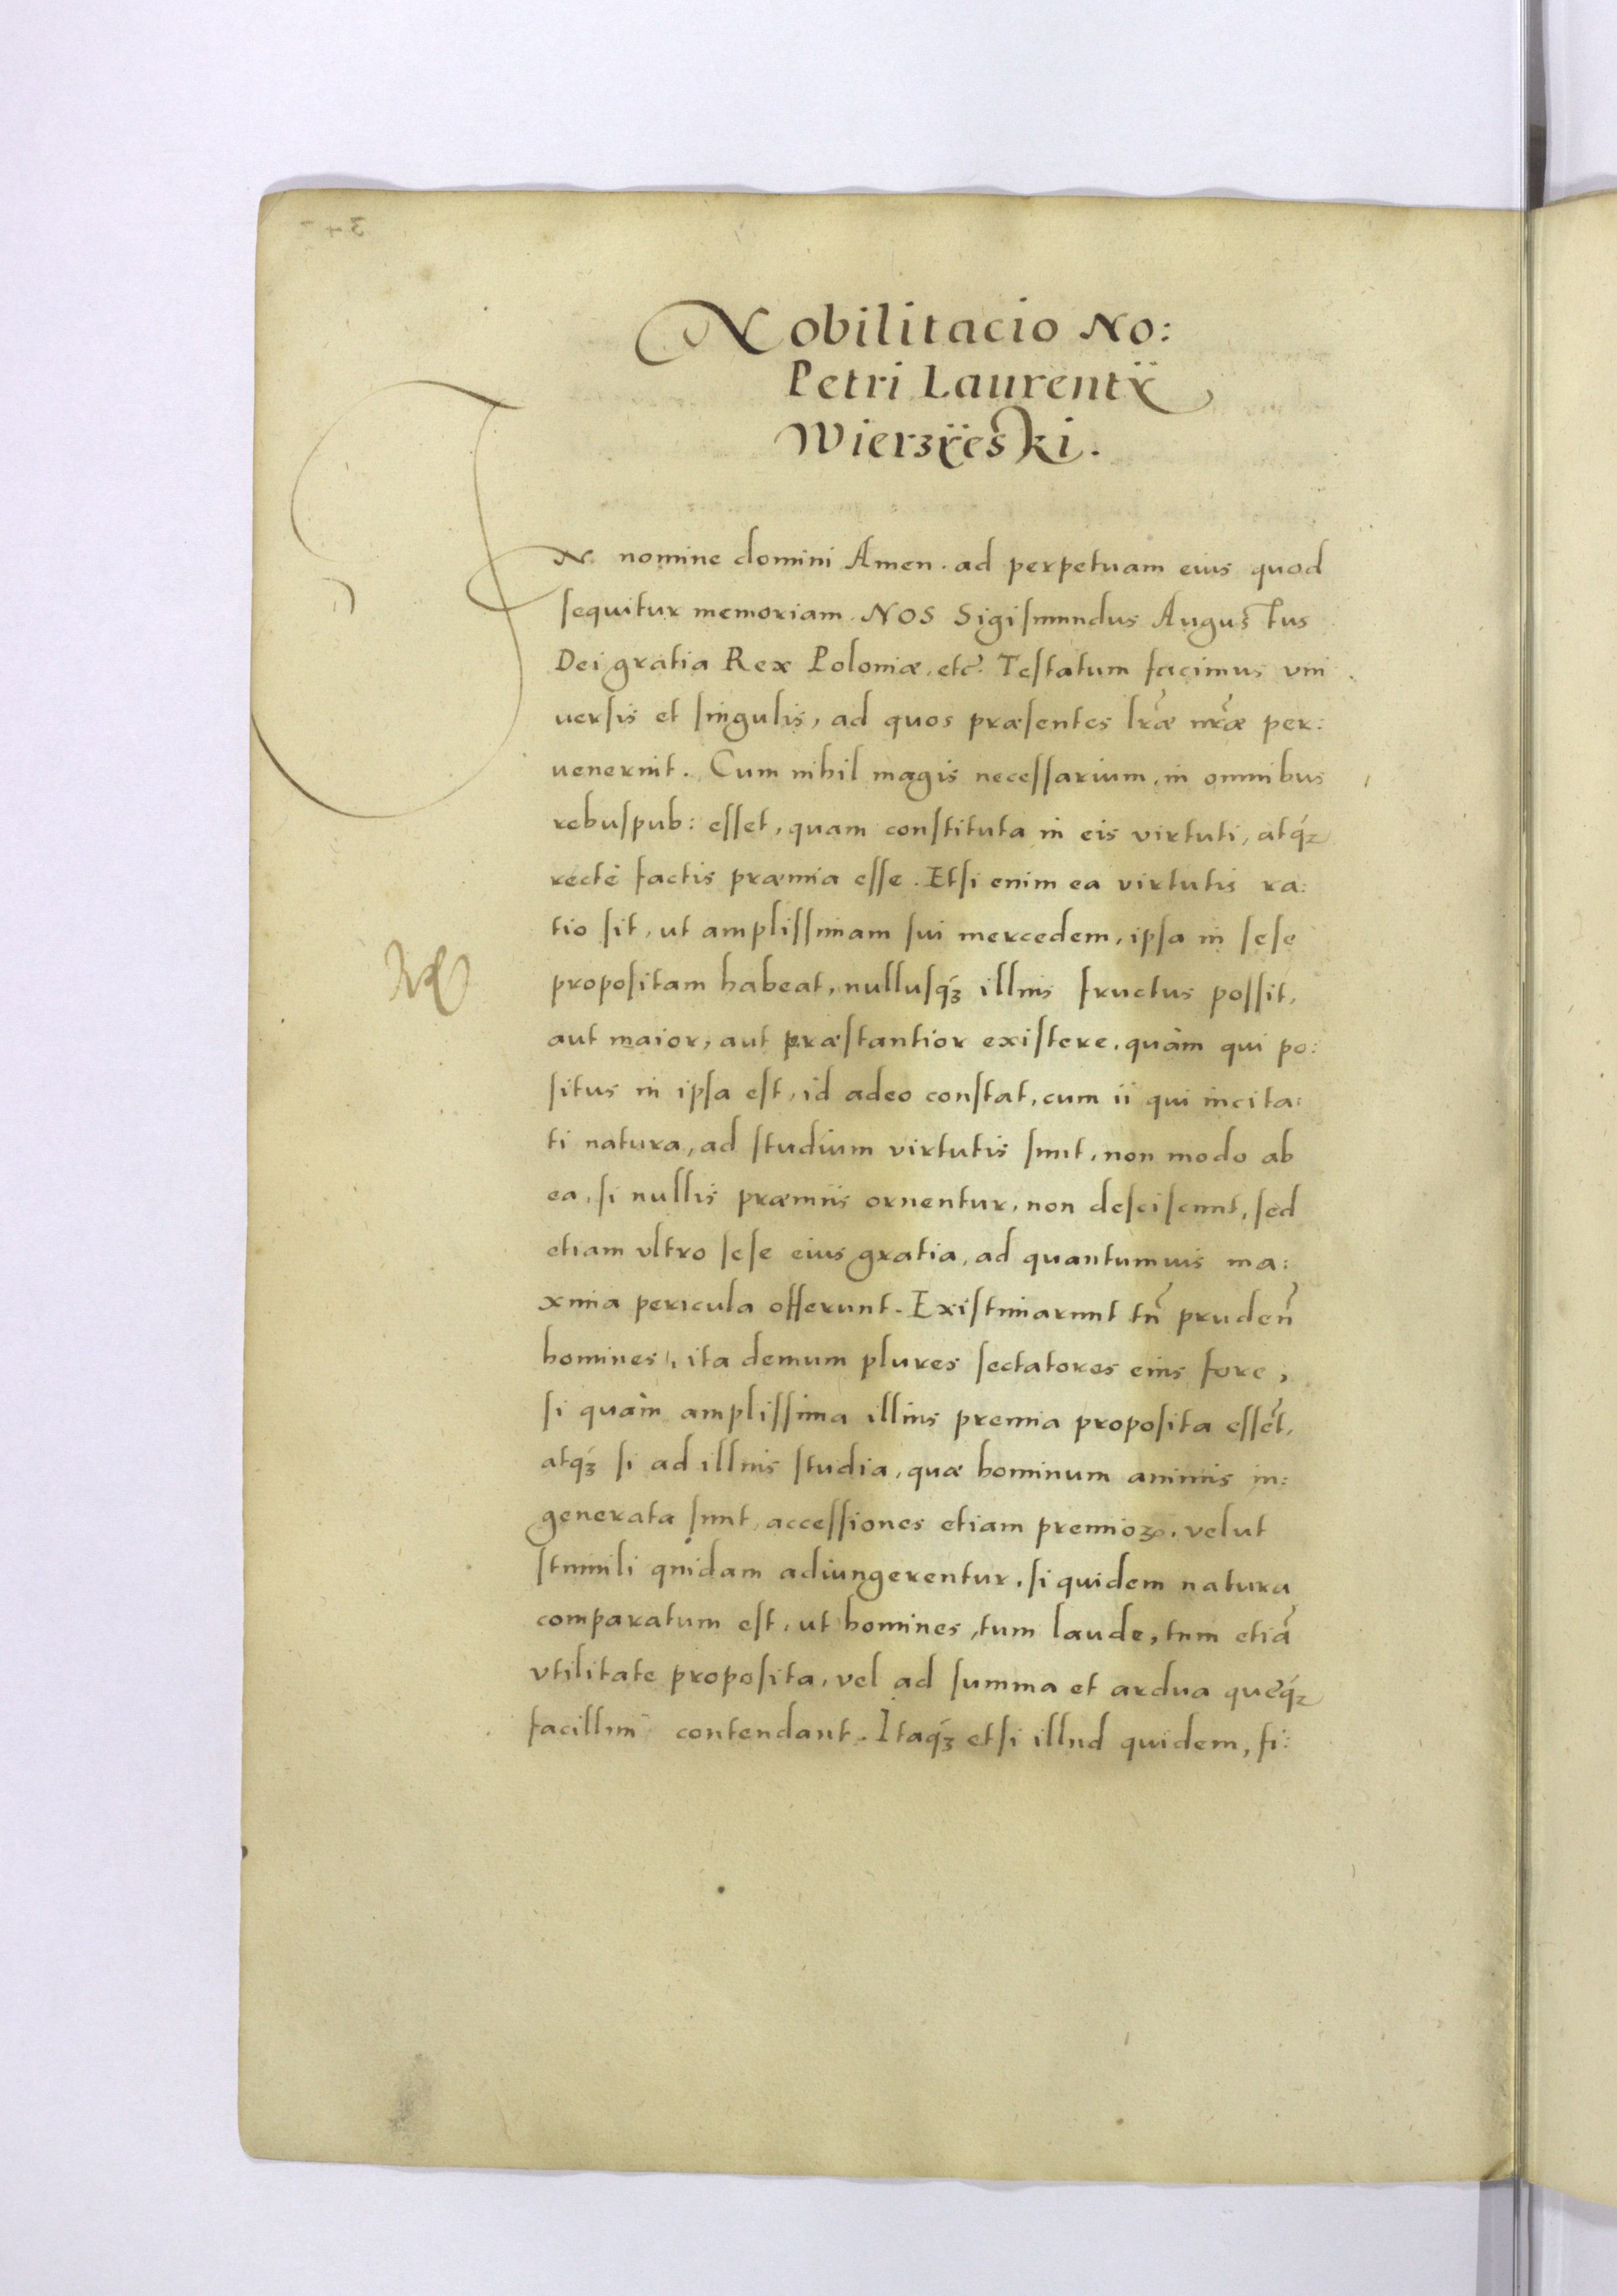 Nobilitacio No:
Petri Laurentÿ
Wierzÿeski.
IN nomine domini Amen. ad perpetuam eius quod
sequitur memoriam. NOS Sigismundus Augustus
Dei gratia Rex Poloniæ, etc̃. Testatum facimus vni
uersis et singulis, ad quos præsentes lr̃æ nr̃æ per:
uenerint. Cum nihil magis necessarium, in omnibus
rebuspub: esset, quam constituta in eis virtuti, atq́ꝫ
rectè factis præmia esse. Etsi enim ea virtutis ra:
tio sit, ut amplissimam sui mercedem, ipsa in sese
propositam habeat, nullusq́ꝫ illius fructus possit,
aut maior, aut præstantior existere, quàm qui po:
situs in ipsa est, id adeo constat, cum ii qui incita:
ti natura, ad studium virtutis sunt, non modo ab
ea, si nullis præmiis ornentur, non desciscunt, sed
etiam vltro sese eius gratia, ad quantumuis ma:
xima pericula offerunt. Existimarunt tñ prudeñ
homines, ita demum plures sectatores eius fore,
si quàm amplissima illius premia proposita esset̃,
atq́ꝫ si ad illius studia, quæ hominum animis in:
generata sunt, accessiones etiam premioꝝ, velut
stimuli quidam adiungerentur, si quidem natura
comparatum est, ut homines, tum laude, tum etiã
vtilitate proposita, vel ad summa et ardua queq́ꝫ
facillim contendant. Itaq́ꝫ etsi illud quidem, fi: